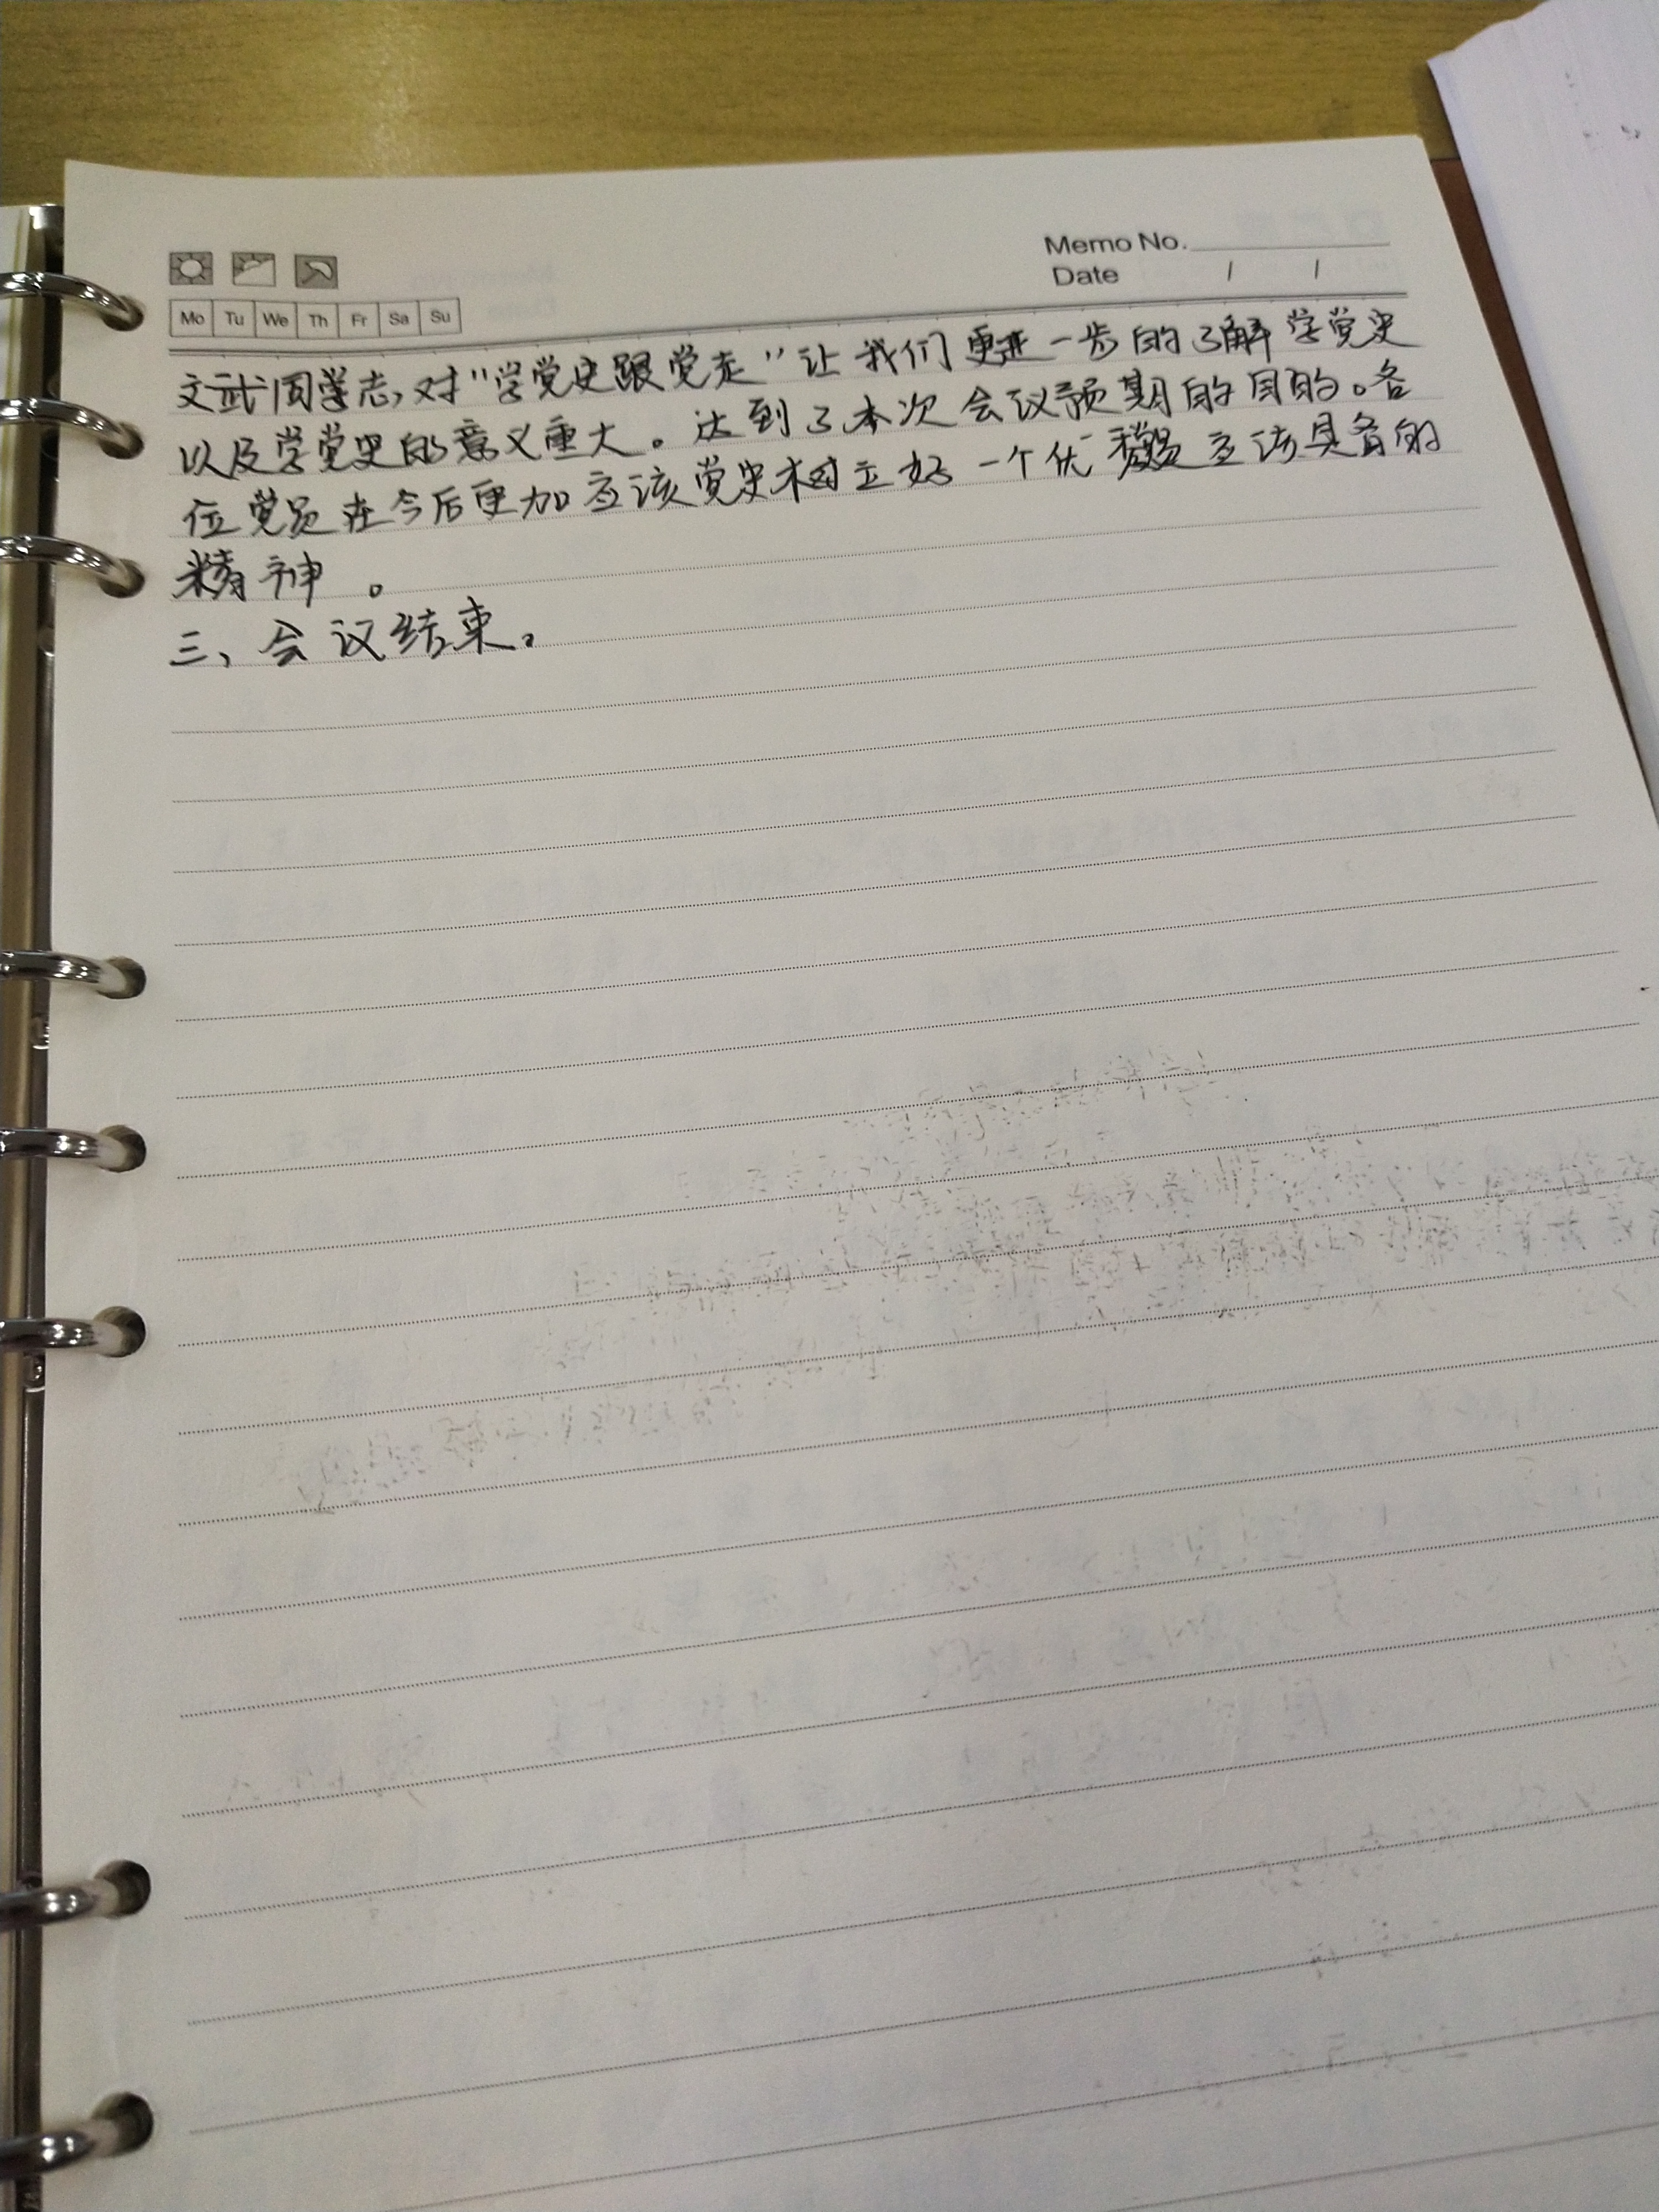 Memo No.
Date / /
Mo Tu We Th Fr Sa Su
文武同学志,对"学党史跟党走"让我们更进一步的了解学党史
以及学党史的意义重大。达到了本次会议预期的目的。各
位党员在今后更加应该党史树立好一个优秀党员应该具备的
精神。
三、会议结束。